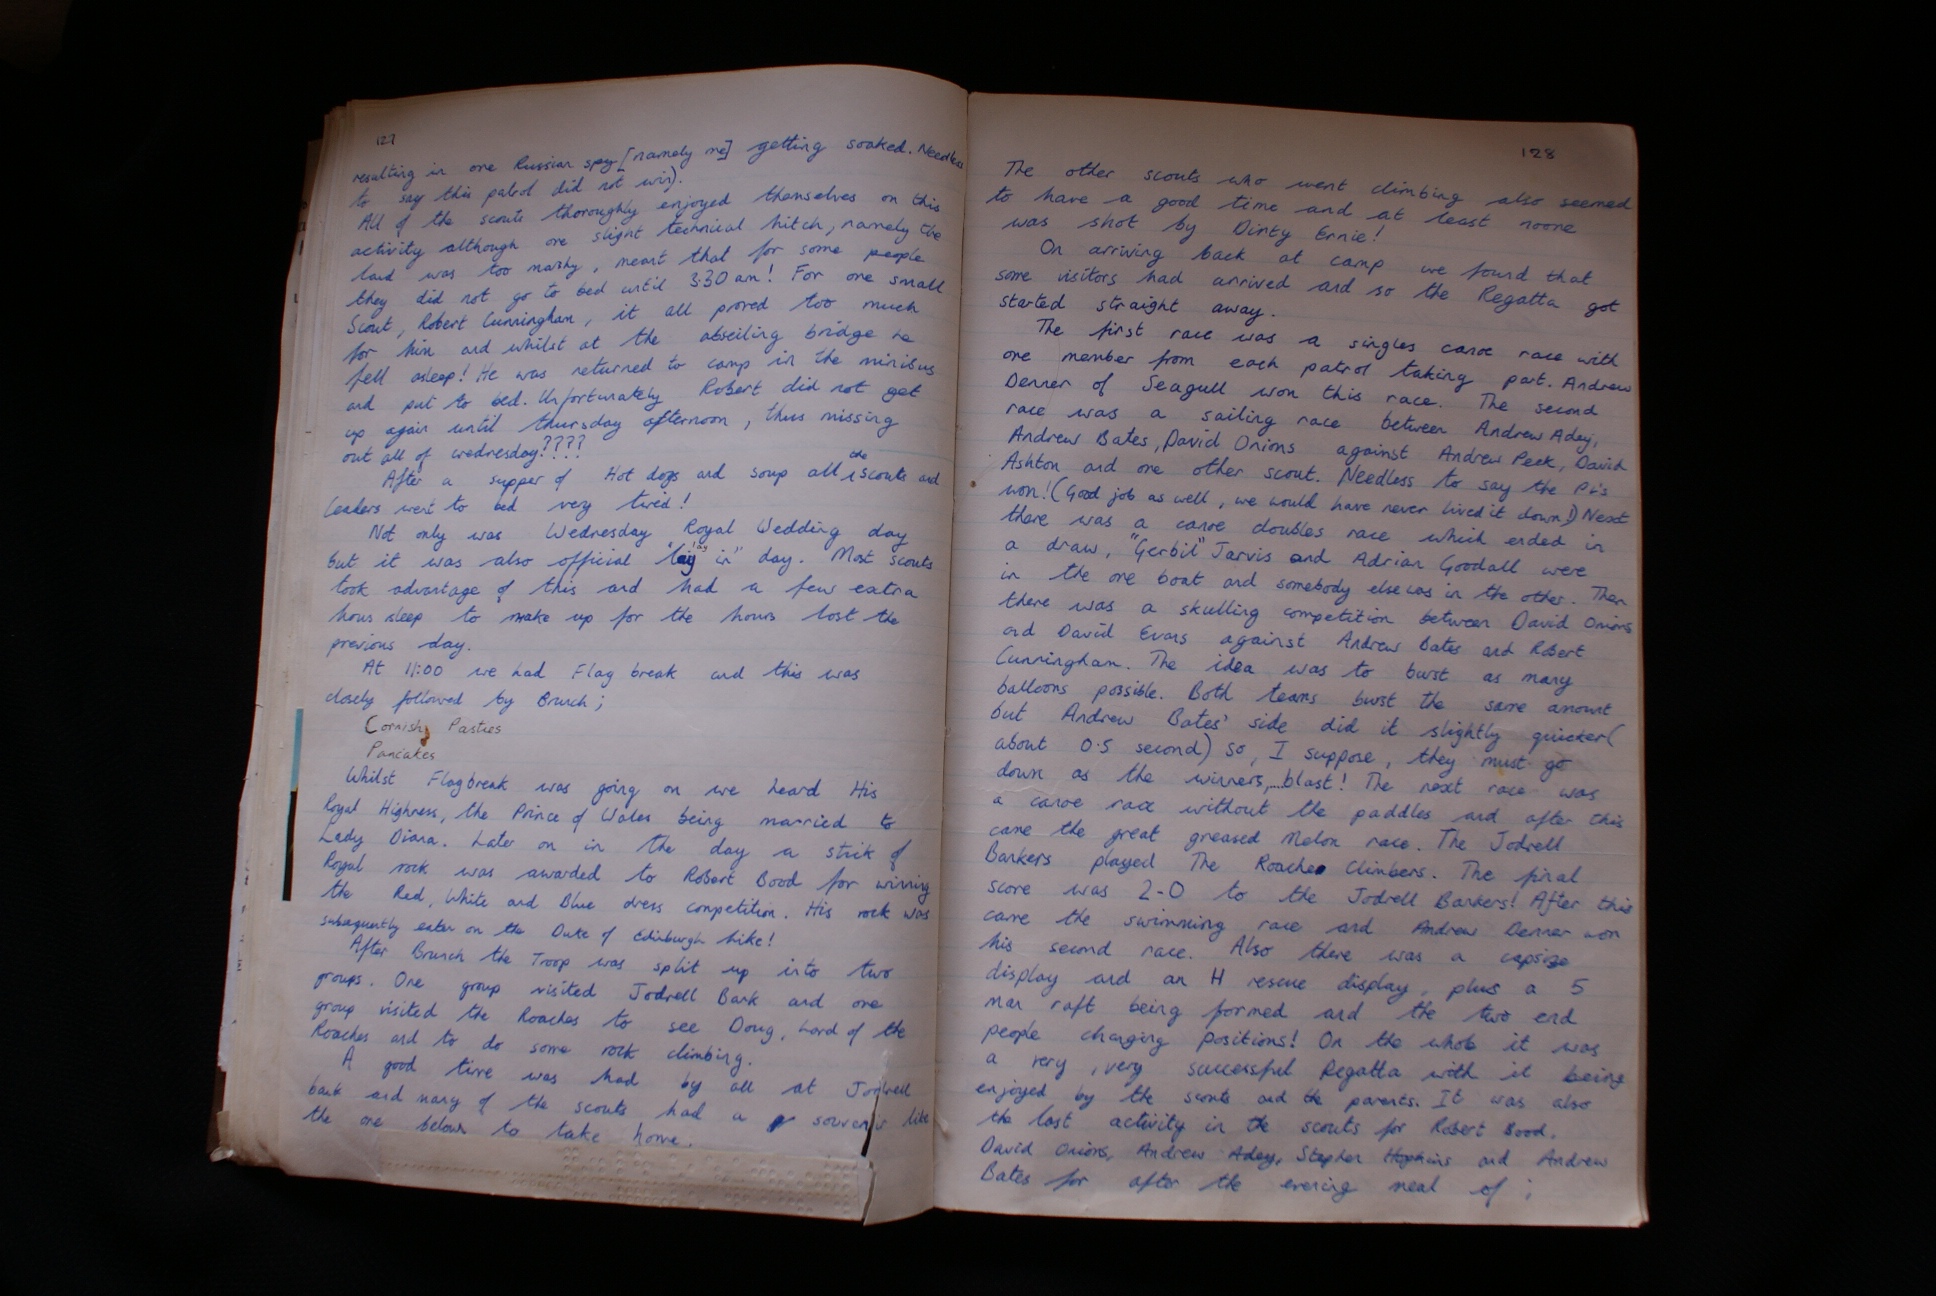 127
resulting in one Russian spy [namely me] getting soaked. Needless
to say this patrol did not win).
All of the scouts thoroughly enjoyed themselves on this
activity although one slight technical hitch, namely the
land was too marshy, meant that for some people
they did not go to bed until 3:30 am! For one small
Scout, Robert Cunningham, it all proved too much
for him and whilst at the abseiling bridge he
fell asleep! He was returned to camp in the minibus
and put to bed. Unfortunately Robert did not get
up again until thursday afternoon, thus missing
out all of wednesday????
After a supper of Hot dogs and soup all the scouts and
leaders went to bed very tired!
Not only was Wednesday Royal Wedding day
but it was also official "lay in" day. Most scouts
took advantage of this and had a few extra
hours sleep to make up for the hours lost the
previous day.
At 11:00 we had Flag break and this was
closely followed by Brunch;
Cornish Pasties
Pancakes
Whilst Flagbreak was going on we heard His
Royal Highness, the Prince of Wales being married to
Lady Diana. Later on in the day a stick of
Royal rock was awarded to Robert Bood for winning
the Red, White and Blue dress competition. His rock was
subsequently eaten on the Duke of Edinburgh hike!
After Brunch the Troop was split up into two
groups. One group visited Jodrell Bank and one
group visited the Roaches to see Doug, Lord of the
Roaches and to do some rock climbing.
A good time was had by all at Jodrell
bank and many of the scouts had a souvenir like
the one below to take home.
128
The other scouts who went climbing also seemed
to have a good time and at least noone
was shot by Dirty Ernie!
On arriving back at camp we found that
some visitors had arrived and so the Regatta got
started straight away.
The first race was a singles canoe race with
one member from each patrol taking part. Andrew
Denner of Seagull won this race. The second
race was a sailing race between Andrew Adey,
Andrew Bates, David Onions against Andrew Peek, David
Ashton and one other scout. Needless to say the PL's
won! (Good job as well, we would have never lived it down!) Next
there was a canoe doubles race which ended in
a draw, "Gerbil" Jarvis and Adrian Goodall were
in the one boat and somebody else was in the other. Then
there was a skulling competition between David Onions
and David Evans against Andrew Bates and Robert
Cunningham. The idea was to burst as many
balloons possible. Both teams burst the same amount
but Andrew Bates' side did it slightly quicker (
about 0.5 second) so, I suppose, they must go
down as the winners,....blast! The next race was
a canoe race without the paddles and after this
came the great greased Melon race. The Jodrell
Bankers played The Roaches Climbers. The final
score was 2-0 to the Jodrell Bankers! After this
came the swimming race and Andrew Denner won
his second race. Also there was a capsize
display and an H rescue display, plus a 5
man raft being formed and the two end
people changing positions! On the whole it was
a very, very successful Regatta with it being
enjoyed by the scouts and the parents. It was also
the last activity in the scouts for Robert Bood,
David Onions, Andrew Adey, Stephen Hopkins and Andrew
Bates for after the evening meal of ;